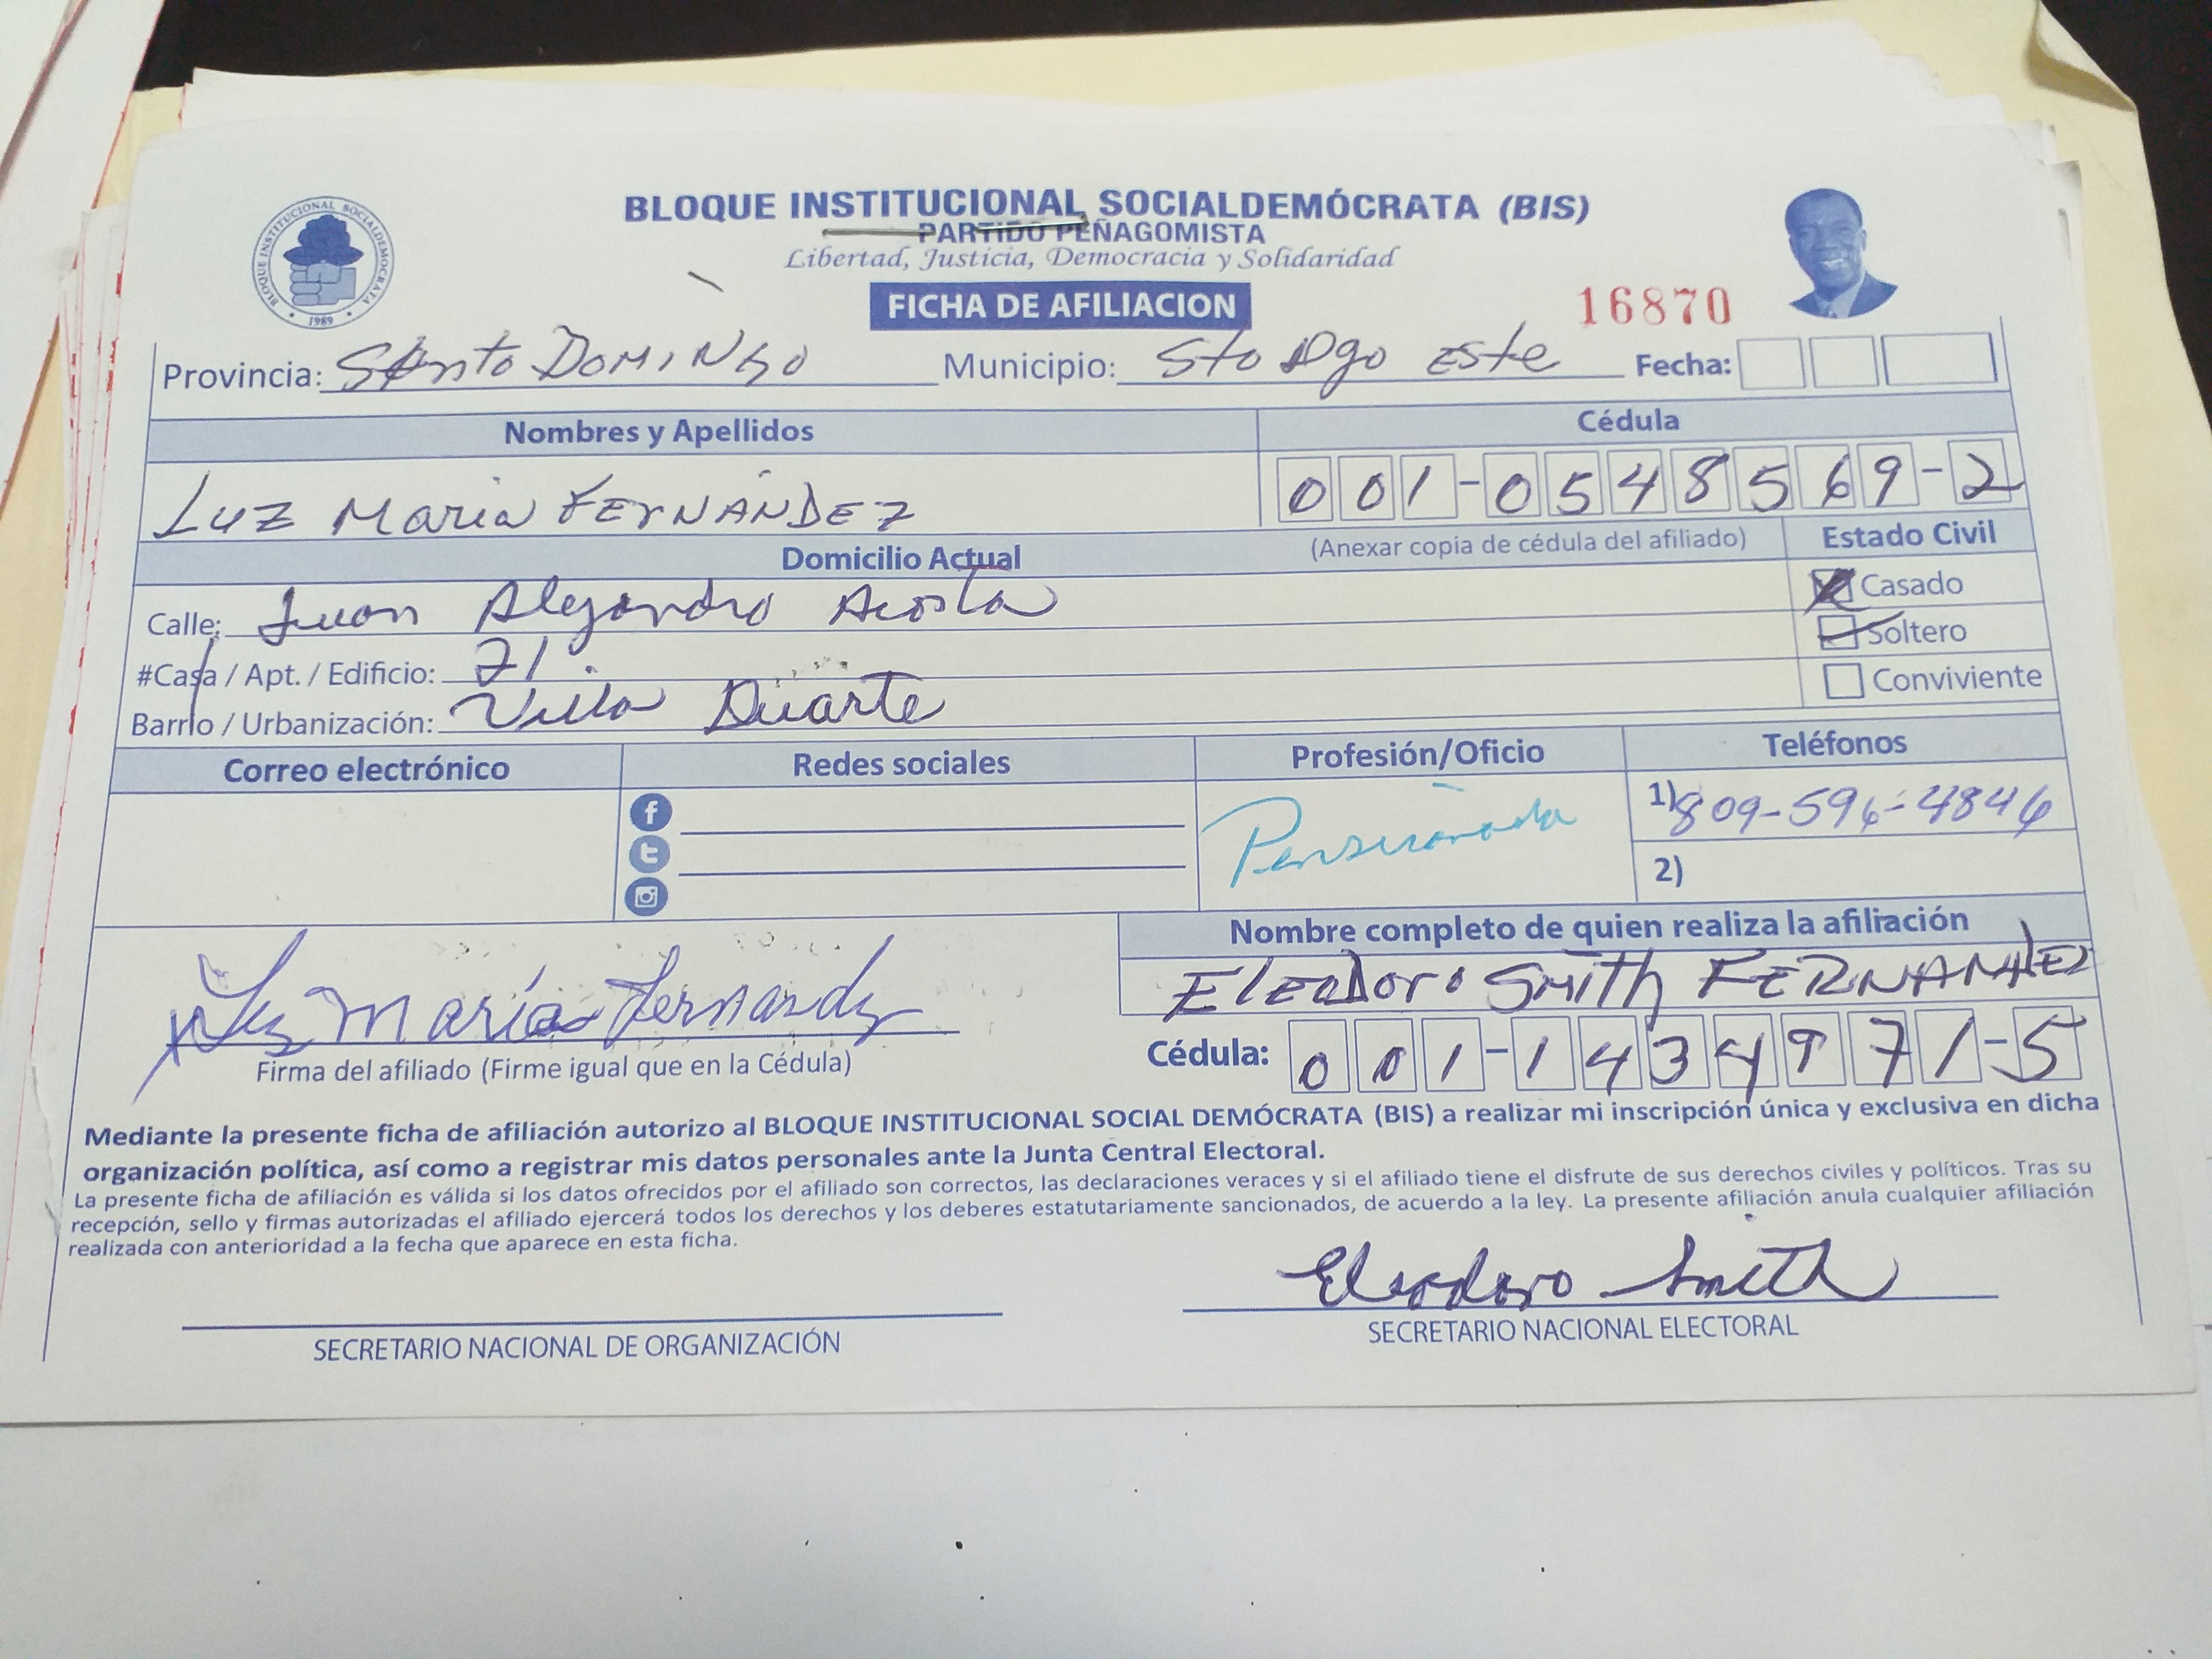 BLOQUE INSTITUCIONAL SOCIALDEMÓCRATA (BIS)
PARTIDO PEÑAGOMISTA
Libertad, Justicia, Democracia y Solidaridad
BLOQUE INSTITUCIONAL SOCIALDEMOCRATA
1989
FICHA DE AFILIACION
16870
Provincia: SAnto DOMINGO Municipio: Sto Dgo Este Fecha:
Nombres y Apellidos Cédula
LUZ María FERNÁNDEZ 001-0548569-2
Domicilio Actual (Anexar copia de cédula del afiliado) Estado Civil
Calle: Juan Alejandro Acosta Casado
#Casa / Apt. / Edificio: 71. Soltero
Barrio / Urbanización: Villa Duarte Conviviente
Correo electrónico Redes sociales Profesión/Oficio Teléfonos
Pensionada 1) 809-596-4846
2)
Nombre completo de quien realiza la afiliación
Eleodoro Smith FERNANdEz
Luz María Fernandez
Firma del afiliado (Firme igual que en la Cédula)
Cédula: 001-1434971-5
Mediante la presente ficha de afiliación autorizo al BLOQUE INSTITUCIONAL SOCIAL DEMÓCRATA (BIS) a realizar mi inscripción única y exclusiva en dicha
organización política, así como a registrar mis datos personales ante la Junta Central Electoral.
La presente ficha de afiliación es válida si los datos ofrecidos por el afiliado son correctos, las declaraciones veraces y si el afiliado tiene el disfrute de sus derechos civiles y políticos. Tras su
recepción, sello y firmas autorizadas el afiliado ejercerá todos los derechos y los deberes estatutariamente sancionados, de acuerdo a la ley. La presente afiliación anula cualquier afiliación
realizada con anterioridad a la fecha que aparece en esta ficha.
Eleodoro Smith
SECRETARIO NACIONAL DE ORGANIZACIÓN SECRETARIO NACIONAL ELECTORAL